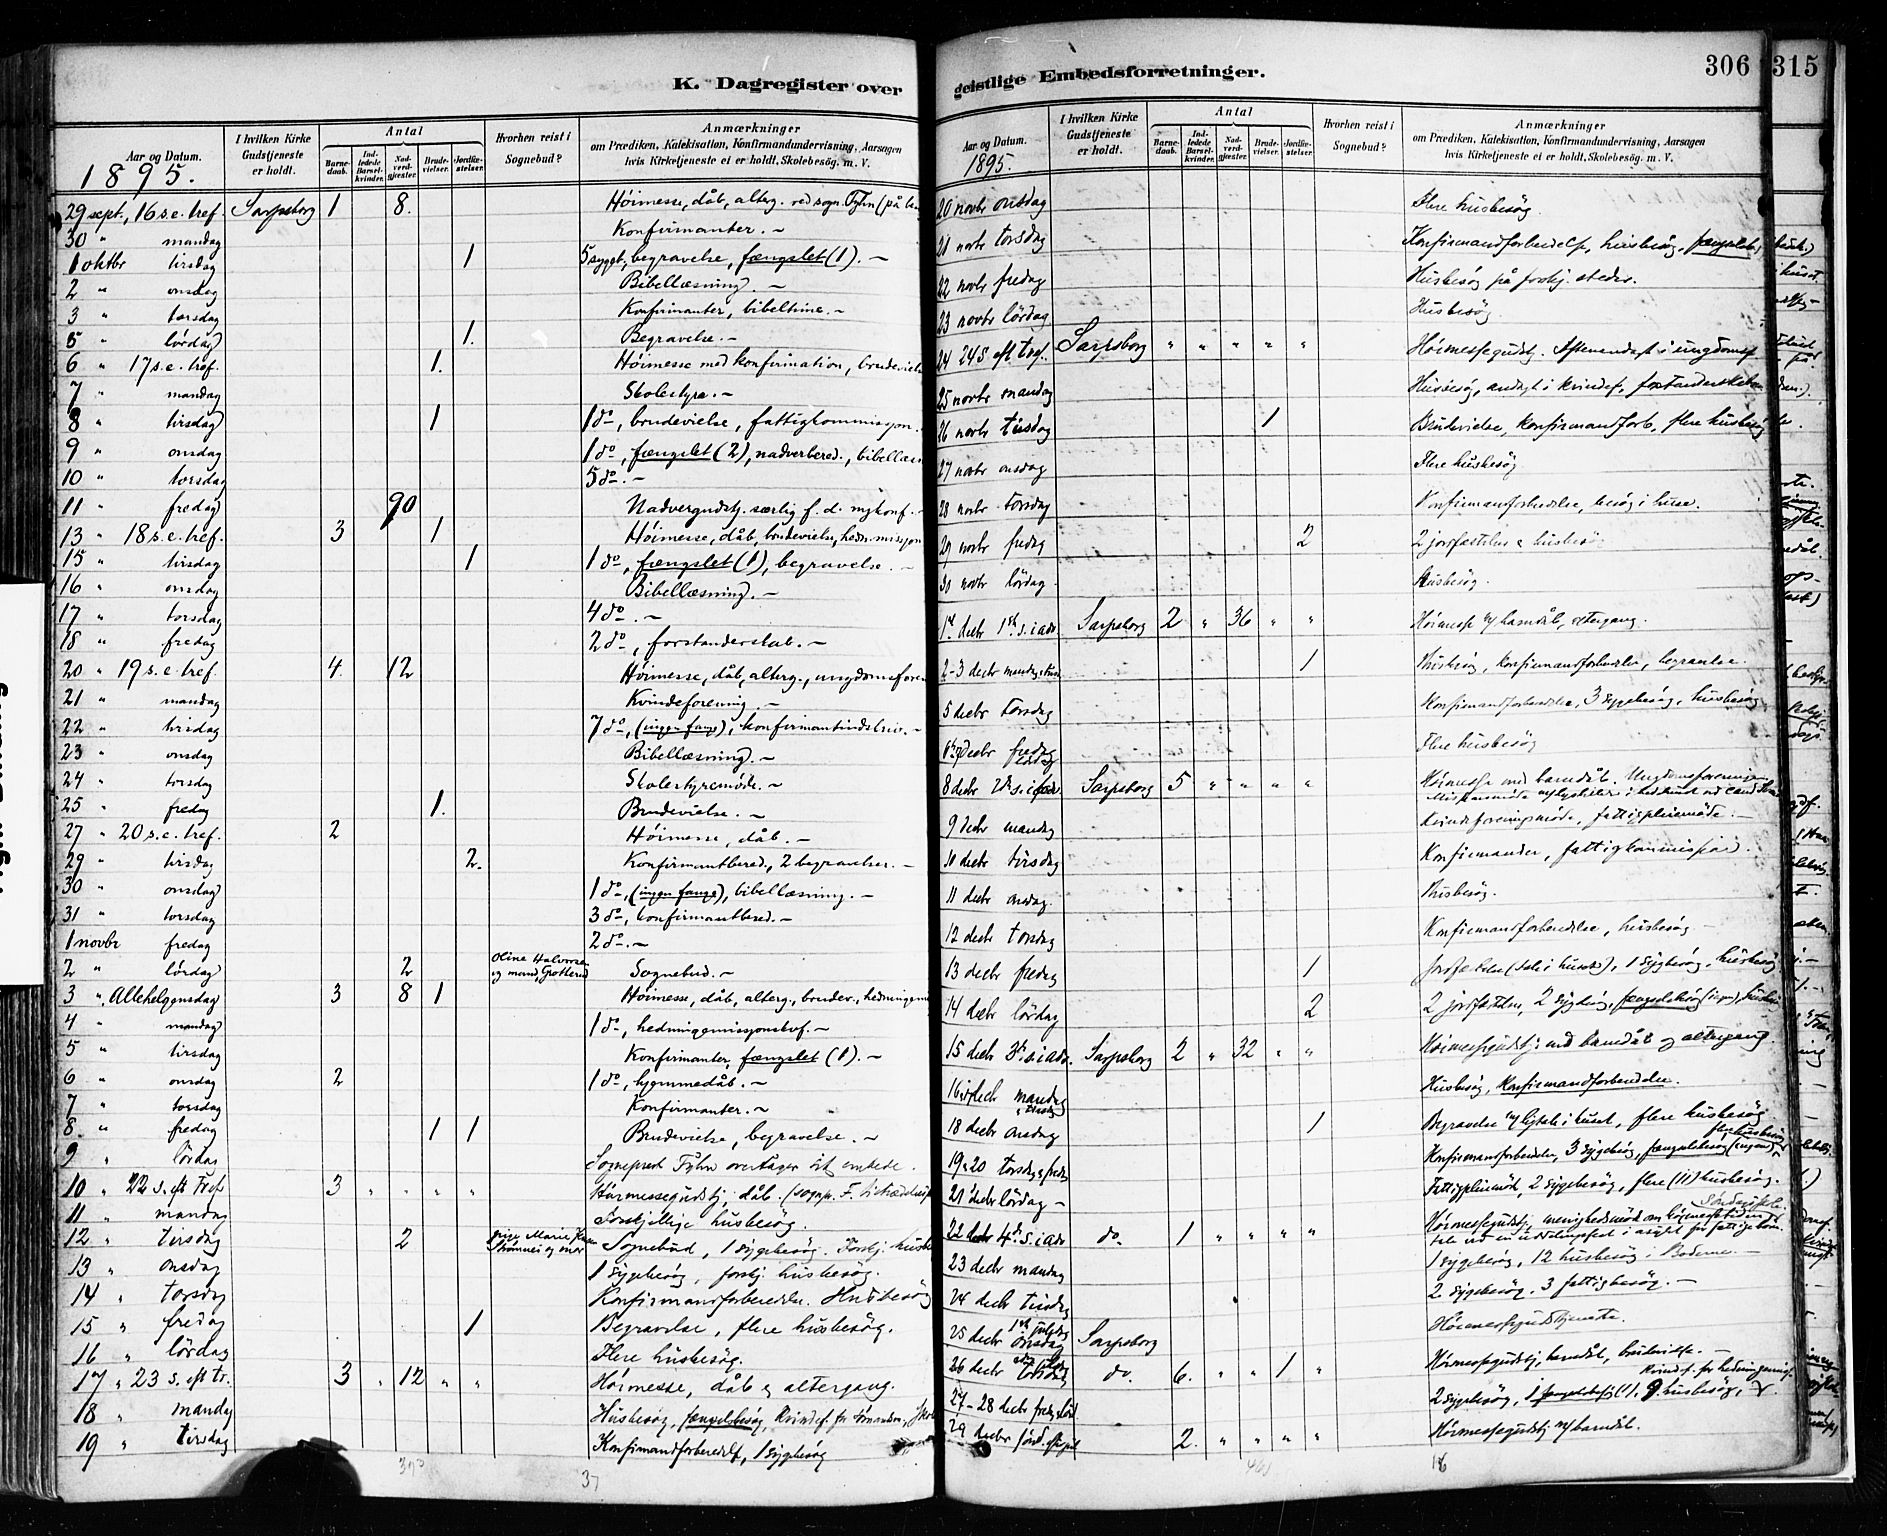 K. Dagregister over
Aar og Datum.
1895.
I hvilken Kirke Gudstjeneste er holdt.
Antal
Barne-daab.
Ind-ledede Barsel-kvinder.
Nad-verd-gjester.
Brude-vielser.
Jordfæ-stelser.
Hvorhen reist i Sognebud?
Anmærkninger
om Prædiken, Katekisation, Konfirmandundervisning, Aarsagen
hvis Kirketjeneste ei er holdt, Skolebesög. m. V.
29 sept., 16 s.e. tref. Sarpsborg 1 8. Höimesse, dåb, alterg. ved sogn. Fyhn (på
30 " mandag Konfirmanter. -
1 oktbr tirsdag 1 5 sygeb., begravelse, fængslet (1). -
2 " onsdag Bibellæsning. -
3 " torsdag Konfirmanter, bibeltime. -
5 " lördag 1. Begravelse. -
6 " 17 s.e. tref. 1. Höimesse med konfirmation, brudeviels
7 " mandag Skolestyre. -
8 " tirsdag 1 1 do, brudevielse, fattigkommissjon.
9 " onsdag 1 do, fængslet (2), nadverbered., bibellæsn
10 " torsdag 5 do. -
11 " fredag 90 Nadvergudstj. særlig f. d. nykonf. -
13 " 18 s.e. tref. 3 1 Höimesse, dåb, brudevielse, hedn. missjon
15 " tirsdag 1 1 do, fængslet (1), begravelse. -
16 " onsdag Bibellæsning. -
17 " torsdag 4 do. -
18 " fredag 2 do, forstanderskab. -
20 " 19 s.e. tref. 4. 12 Höimesse, dåb, alterg., ungdomsforen
21 " mandag Kvindeforening. -
22 " tirsdag 7 do, (ingen fange), konfirmantindskriv. -
23 " onsdag Bibellæsning. -
24 " torsdag Skolestyremöde. -
25 " fredag 1. Brudevielse. -
27 " 20 s.e. tref. 2 Höimesse, dåb. -
29 " tirsdag 2. Konfirmantbered., 2 begravelser. -
30 " onsdag 1 do, (ingen fange), bibellæsning. -
31 " torsdag 3 do, konfirmantbered. -
1 novbr fredag 2 do. -
2 " lördag 2 Oline Halvorsen og mand, Grotterød Sognebud. -
3 " Allehelgensdag 3 8 1 Höimesse, dåb, alterg., brudev., hedningem
4 " mandag 1 do, hedningemissjonskof. -
5 " tirsdag Konfirmanter, fængslet (1). -
6 " onsdag 2 1 do, hjemmedåb. -
7 " torsdag Konfirmanter. -
8. " fredag 1 1 Brudevielse, begravelse. -
9 " lördag Sogneprest Fyhn overtager sit embede.
10 " 22 s. eft Tref 3 " " " " Höimessegudstj. dåb. (sognp. F.
11 " mandag Forskjellige husbesög.
12 " tirsdag 2 Marie Strömnes og mor Sognebud, 1 sygebesög. Forskj. husbe
13 " onsdag 1 sygebesög, forskj. husbesög.
14 " torsdag Konfirmandforberedelse. Husbesög
15 " fredag 1 Begravelse, flere husbesög.
16 " lördag Flere husbesög.
17 " 23 s. eft tr. 3 " 12 " " Höimesse, dåb & altergang.
18 " mandag Husbesög, fængselsbesög, Kvindef. for
19 " tirsdag Konfirmandforberedels, 1 sygebesög
37
geistlige Embedsforretninger.
306
315
Aar og Datum.
1895.
I hvilken Kirke Gudstjeneste er holdt.
Antal
Barne-daab.
Ind-ledede Barsel-kvinder.
Nad-verd-gjester.
Brude-vielser.
Jordfæ-stelser.
Hvorhen reist i Sognebud?
Anmærkninger
om Prædiken, Katekisation, Konfirmandundervisning, Aarsagen
hvis Kirketjeneste ei er holdt, Skolebesög. m. V.
20 novbr onsdag Flere husbesög.
21 novbr torsdag Konfirmandforberedelse, husbesög, fængselsb
22 novbr fredag Husbesög på forskj. steder.
23 novbr lördag Husbesög.
24 24 S. eft tref. Sarpsborg " " " " " Höimessegudstj. Aftenandagt i ungdomsf
25 novbr mandag Husbesög, andagt i kvindef,
26 novbr tirsdag 1 Brudevielse, konfirmandforb, flere husbesög
27 novbr onsdag Flere husbesög
28 novbr torsdag Konfirmandforberedelse, besög i huse.
29 novbr fredag 2 2 jordfæstelser & husbesög
30 novbr lördag Husbesög.
1 decbr 1ste s. i adv. Sarpsborg 2 " 36 " " Höimesse m/ barnedåb, altergang.
2-3 decbr mandag & tirsd 1 Husbesög, konfirmandforberedelse, begravelse.
5 decbr torsdag Konfirmandforberedelse, 3 sygebesög, husbesög
decbr fredag lördag Flere husbesög
8 decbr 2 s. i adv. Sarpsborg 5 " " " " Höimesse med barnedåb. Ungdomsforeningen
9 decbr mandag Kvindeforeningsmöde, fattigpleiemöde. -
10 decbr tirsdag Konfirmander, fattigkommission.
11 decbr onsdag. Husbesög.
12 decbr torsdag Konfirmandforberedelse, husbesög -
13 decbr fredag 1 Jordfæstelse (tale i huset), 1 sygebesög, husbesög
14 decbr lördag 2 2 jordfæstelser, 2 sygebesög, fængselsbesög (ingen), husbesög
15 decbr 3 s. i adv. Sarpsborg 2 " 32 " " Höimessegudstj. med barnedåb og altergang
16 decbr mandag & tirsdag Husbesög, konfirmandforberedelse.
18 decbr onsdag 1 Begravelse m/ ligtale i huset, flere husbesög
19 & 20 torsdag & fredag Konfirmandforberedelse, 3 sygebesög, fængselsbesög (ingen), flere husbesög
21 decbr lördag - Fattigpleiemöde, 2 sygebesög, flere (11) husbesög.
22 decbr 4 s. i adv do. 1 " " " " Höimessegudstj. menighedsmöde om
23 decbr mandag 1 sygebesög, 12 husbesög i Boderne. -
24 decbr tirsdag 2 sygebesög, 3 fattigbesög. -
25 decbr 1ste juledag onsdag Sarpsborg Höimessegudstjeneste.
26 decbr 2den juledag torsdag do. 6. " " 1 " Höimessegudstj, barnedåb, brudevielse. -
27-28 decbr fredag & lörd 2 sygebesög, 1 fængselsbesög (1), 9 husbesög, Kvindef. for hedningemiss.
29 decbr sönd. eft. jul 2. " " " " Höimessegudstj m/ barnedåb.
16